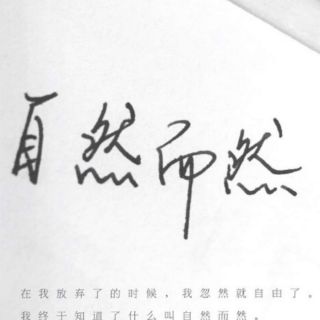 自然而然
在我放弃了的时候，我忽然就自由了。
我终于知道了什么叫自然而然。